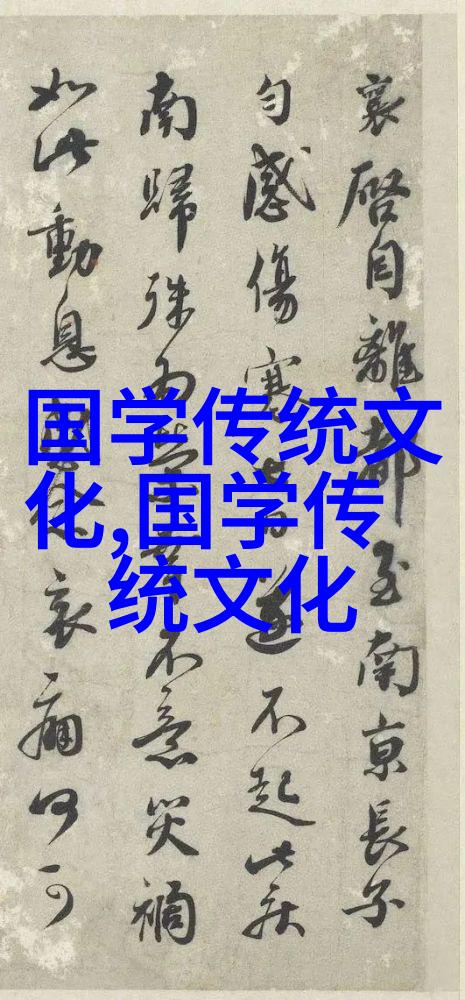 襄啓自離都至南京長子
匀感傷寒遂不起此疾
南歸殊為不意災禍
如此動息哀痛何可
国学传统文
化,国学传
统文化